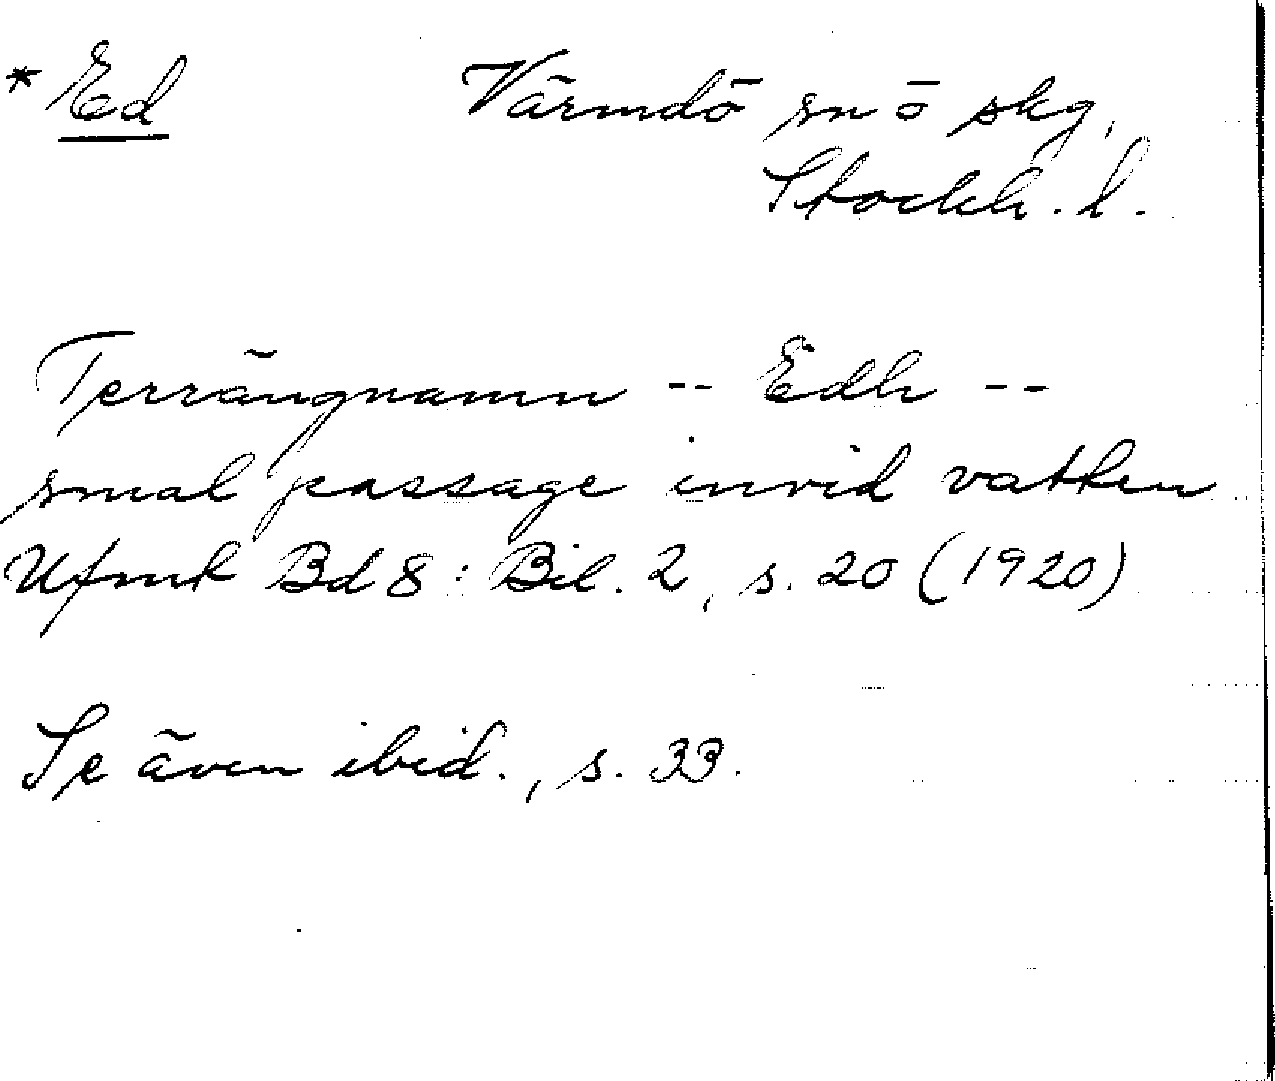 * Ed Värmdö sn ö skg,
Stockh. l.
Terrängnamn -- Edh --
smal passage invid vatten
Ufmk Bd 8: Bil. 2, s. 20 (1920)
Se även ibid., s. 33.